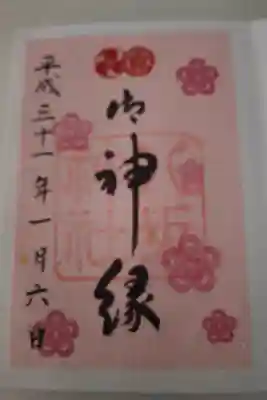 御神縁
平成三十一年一月六日